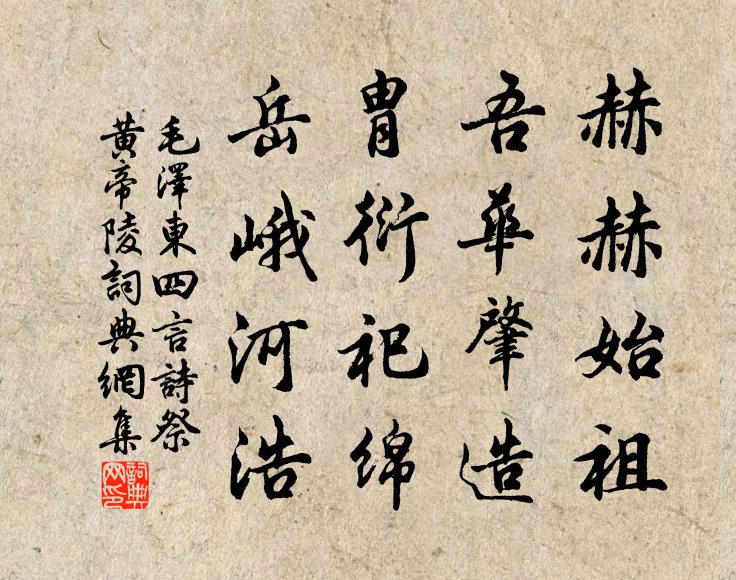 赫赫始祖
吾華肇造
胄衍祀绵
岳峨河浩
毛澤東四言詩祭
黄帝陵詞典網集
詞典网印